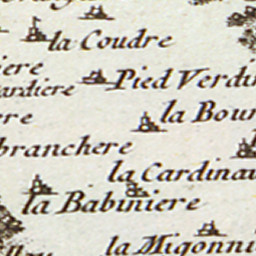 la Coudre
iere
Pied Verdi
ardiere
la Bour
ere
branchere
la Cardinau
la Babiniere
la Migonni